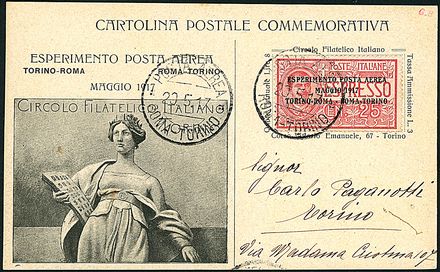 CARTOLINA POSTALE COMMEMORATIVA
ESPERIMENTO POSTA AEREA
TORINO-ROMA ROMA-TORINO
MAGGIO 1917
CIRCOLO FILATELICO ITALIANO
TORINO
Circolo Filatelico Italiano
Tassa Immissione L. 3
POSTE ITALIANE
ESPERIMENTO POSTA AEREA
MAGGIO 1917
TORINO-ROMA · ROMA-TORINO
ESPRESSO
25
Corso Emanuele, 67 - Torino
Signor
Carlo Paganotti
Torino
Via Madama Cristina 107